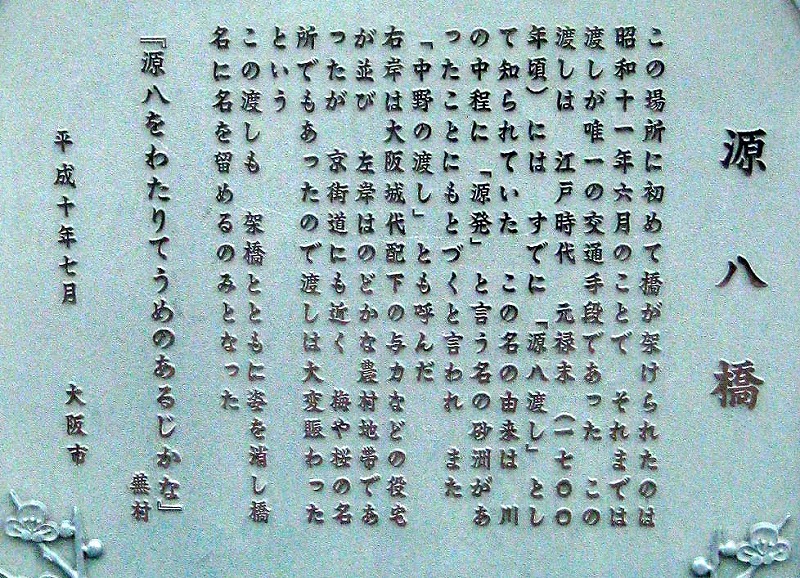 源八橋
この場所に初めて橋が架けられたのは
昭和十一年六月のことで　それまでは
渡しが唯一の交通手段であった　この
渡しは　江戸時代　元禄末（一七〇〇
年頃）には　すでに「源八渡し」とし
て知られていた　この名の由来は　川
の中程に「源発」と言う名の砂洲があ
ったことにもとづくと言われ　また
「中野の渡し」とも呼んだ
右岸は大阪城代配下の与力などの役宅
が並び　左岸はのどかな農村地帯であ
ったが　京街道にも近く　梅や桜の名
所でもあったので渡しは大変賑わった
という
この渡しも　架橋とともに姿を消し橋
名に名を留めるのみとなった
『源八をわたりてうめのあるじかな』
蕪村
平成十年七月
大阪市